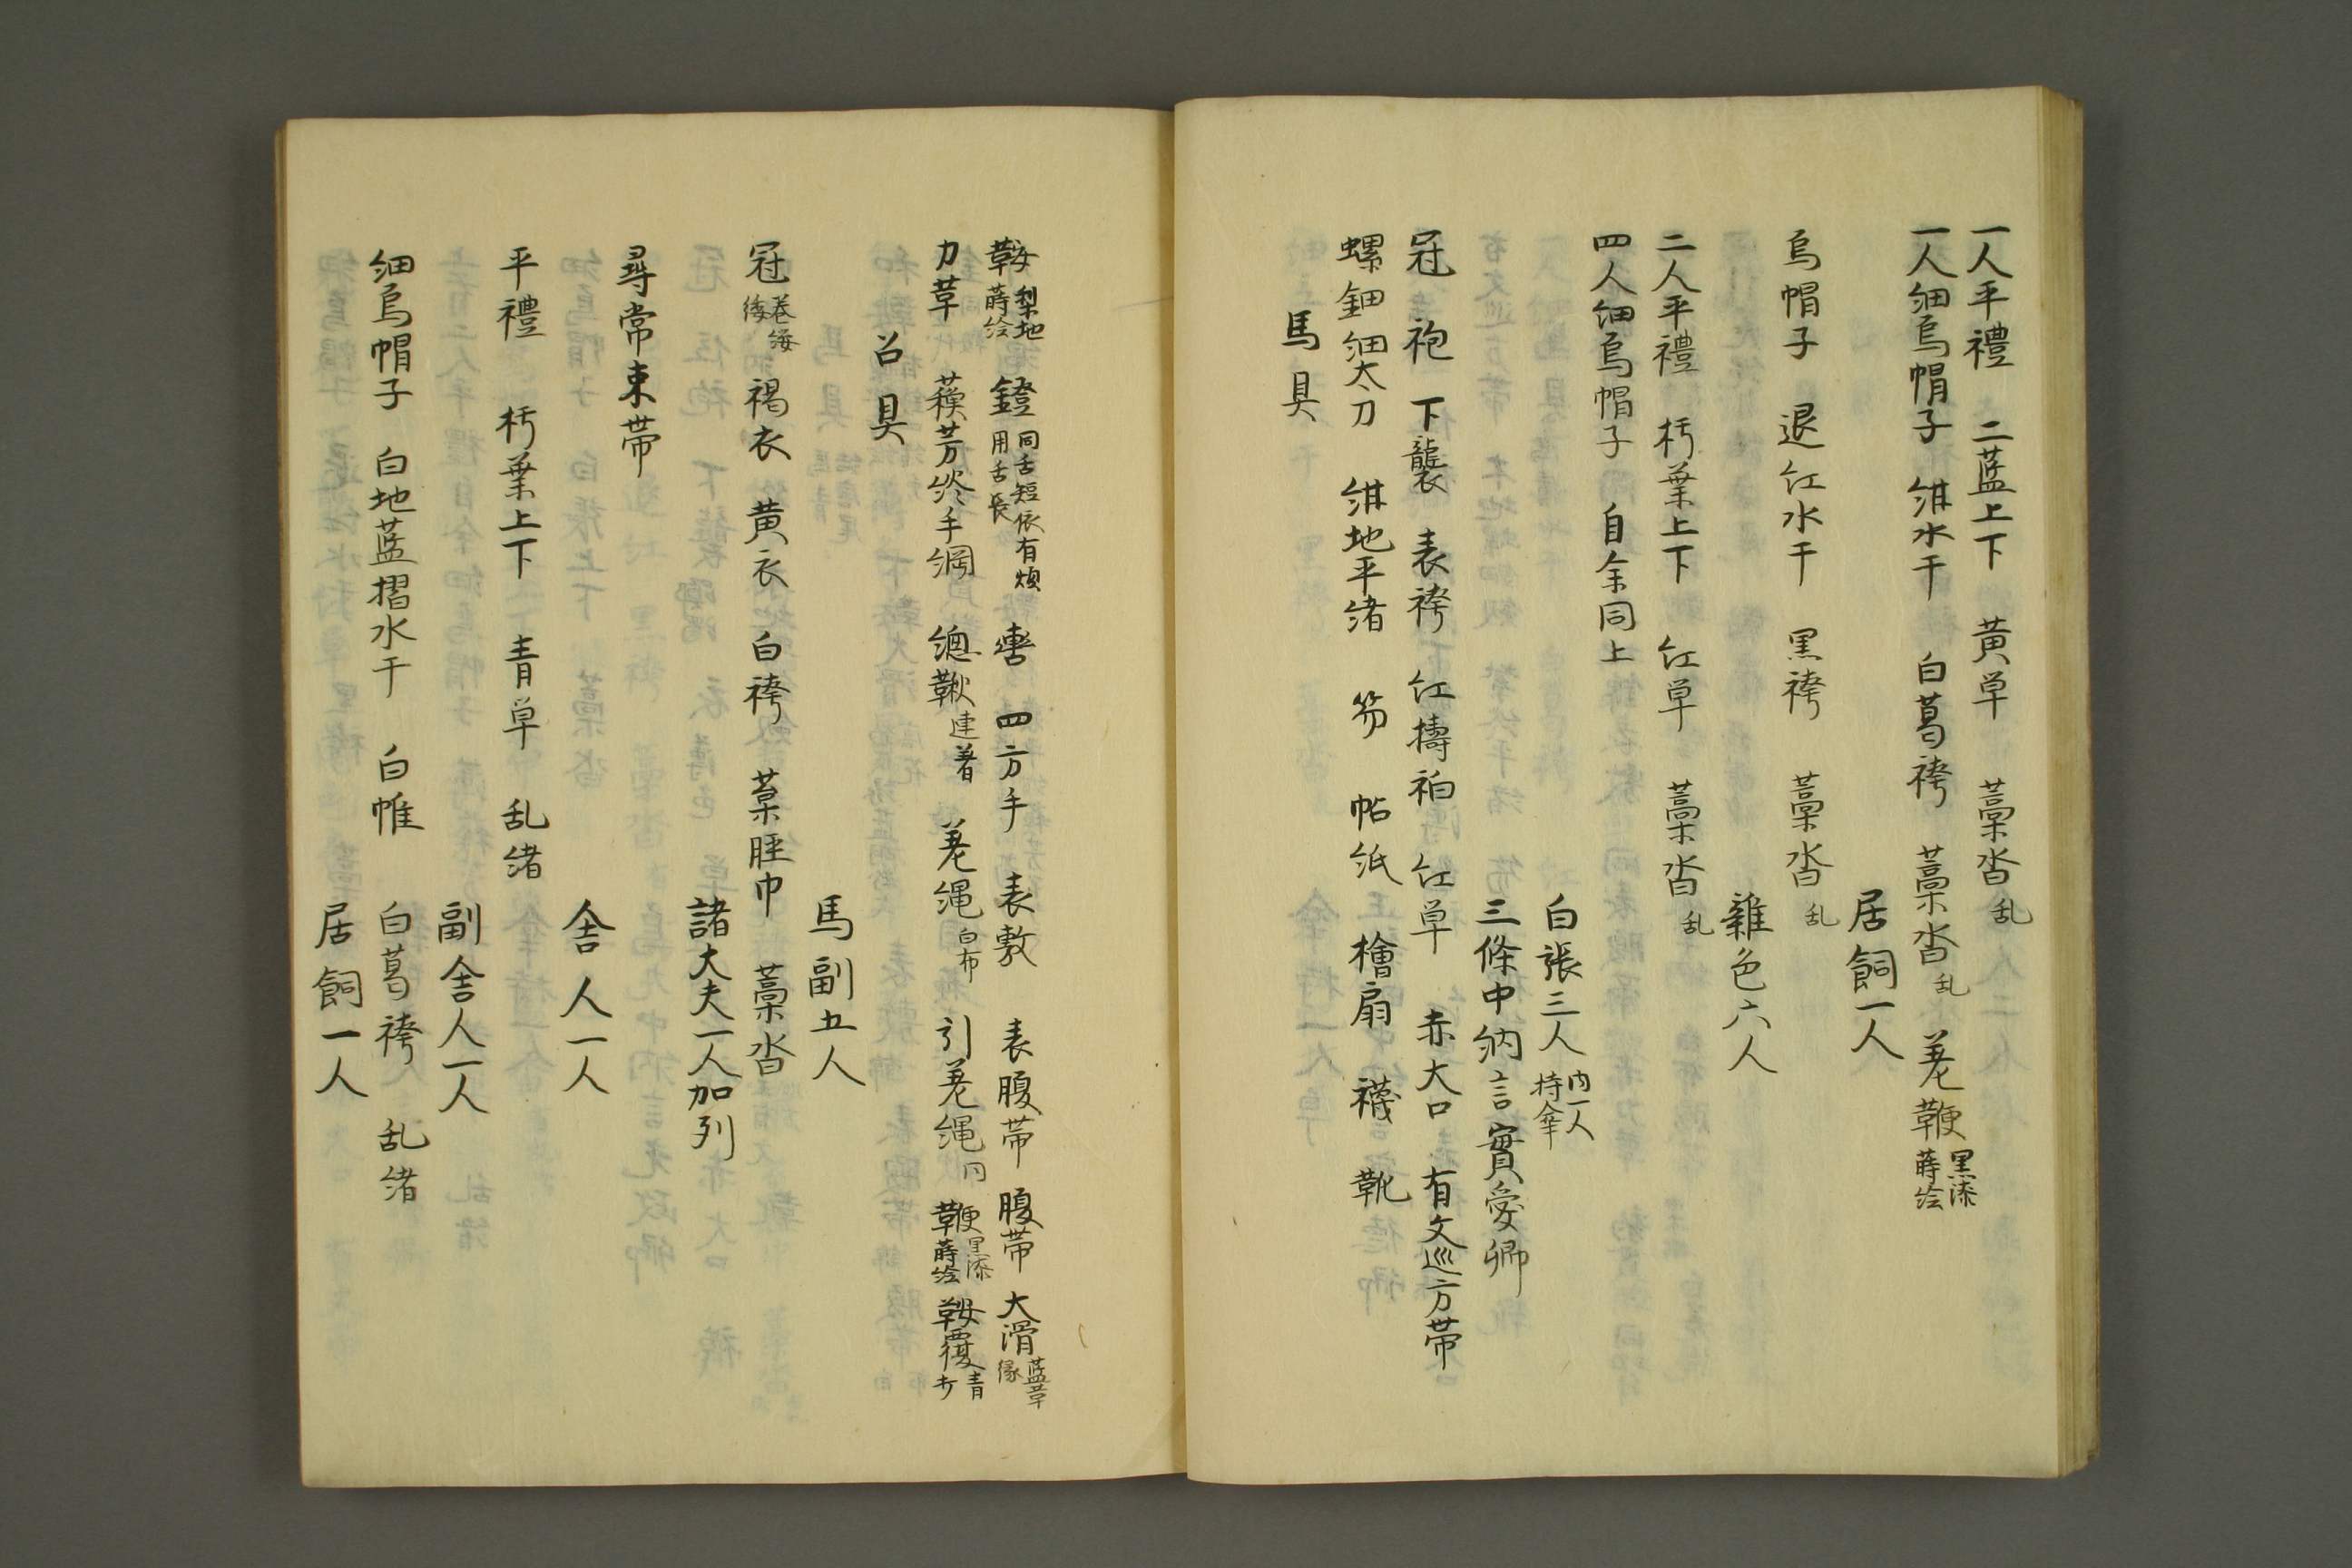 一人平禮　二藍上下　黄単　藁沓乱
一人細烏帽子　紺水干　白葛袴　藁沓乱　差鞭黒漆蒔絵
居飼一人
烏帽子　退紅水干　黒袴　藁沓乱
雜色六人
二人平禮　朽葉上下　紅単　藁沓乱
四人細烏帽子　自余同上
白張三人内一人持傘
三條中納言實愛卿
冠　袍　下襲　表袴　紅擣袙　紅単　赤大口　有文巡方帯
螺鈿細太刀　紺地平緒　笏　帖紙　檜扇　襪　靴
馬具
鞍梨地蒔絵　鐙同舌短依有煩用舌長　轡　四方手　表敷　表腹帯　腹帯　大滑藍革縁
力革　蘓芳淡手綱　總鞦連著　差縄白布　引差縄同　鞭黒漆蒔絵　鞍覆青打
召具
馬副五人
冠巻纓緌　褐衣　黄衣　白袴　藁脛巾　藁沓
諸大夫一人加列
尋常束帯
舎人一人
平禮　朽葉上下　青単　乱緒
副舎人一人
細烏帽子　白地藍摺水干　白帷　白葛袴　乱緒
居飼一人